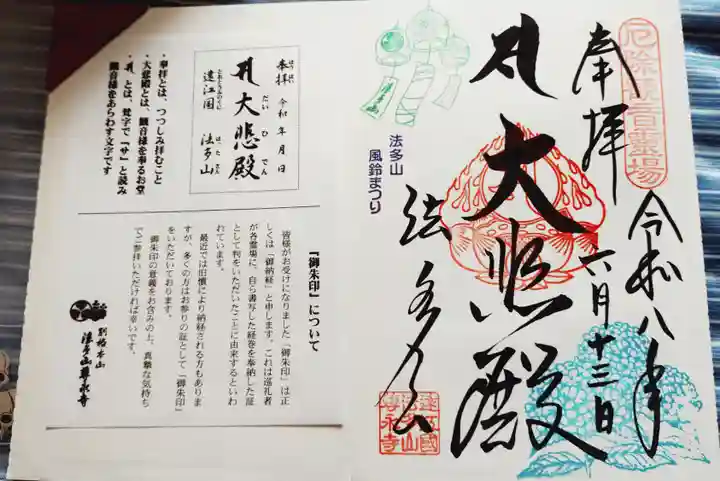 厄除観音霊場
奉拝
令和八年
六月十三日
大悲殿
法多山
法多山
風鈴まつり
遠江國
法多山
尊永寺
ほうはい
奉拝
令和 年 月 日
だいひでん
大悲殿
とおとうみのくに
遠江国
はったさん
法多山
・奉拝とは、つつしみ拝むこと
・大悲殿とは、観音様を奉るお堂
・ とは、梵字で「サ」と読み
観音様をあらわす文字です
『御朱印』について
皆様がお受けになりました「御朱印」は正
しくは「御納経」と申します。これは巡礼者
が各霊場に、自ら書写した経巻を奉納した証
として判をいただいたことに由来するといわ
れています。
最近では旧慣により納経される方もありま
すが、多くの方はお参りの証として「御朱印」
をいただいております。
御朱印の意義をお含みの上、真摯な気持ち
でご参拝いただければ幸いです。
別格本山
法多山尊永寺